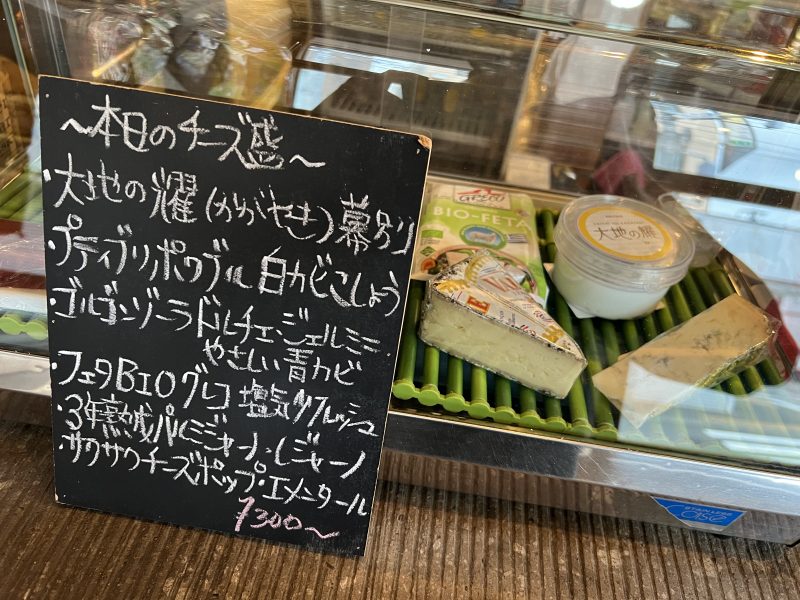 ~本日のチーズ盛~
・大地の耀(かがやき)幕別
・プティブリ,ポワブル 白カビこしょう
・ゴルゴンゾーラ ドルチェ・ジェルミニ
やさしい青カビ
・フェタBIOグレコ 塩気フレッシュ
・3年熟成パルミジャーノ・レジャーノ
・サクサクチーズポップ・エメンタール
1300~
BIO-FETA
大地の耀
STAINLESS